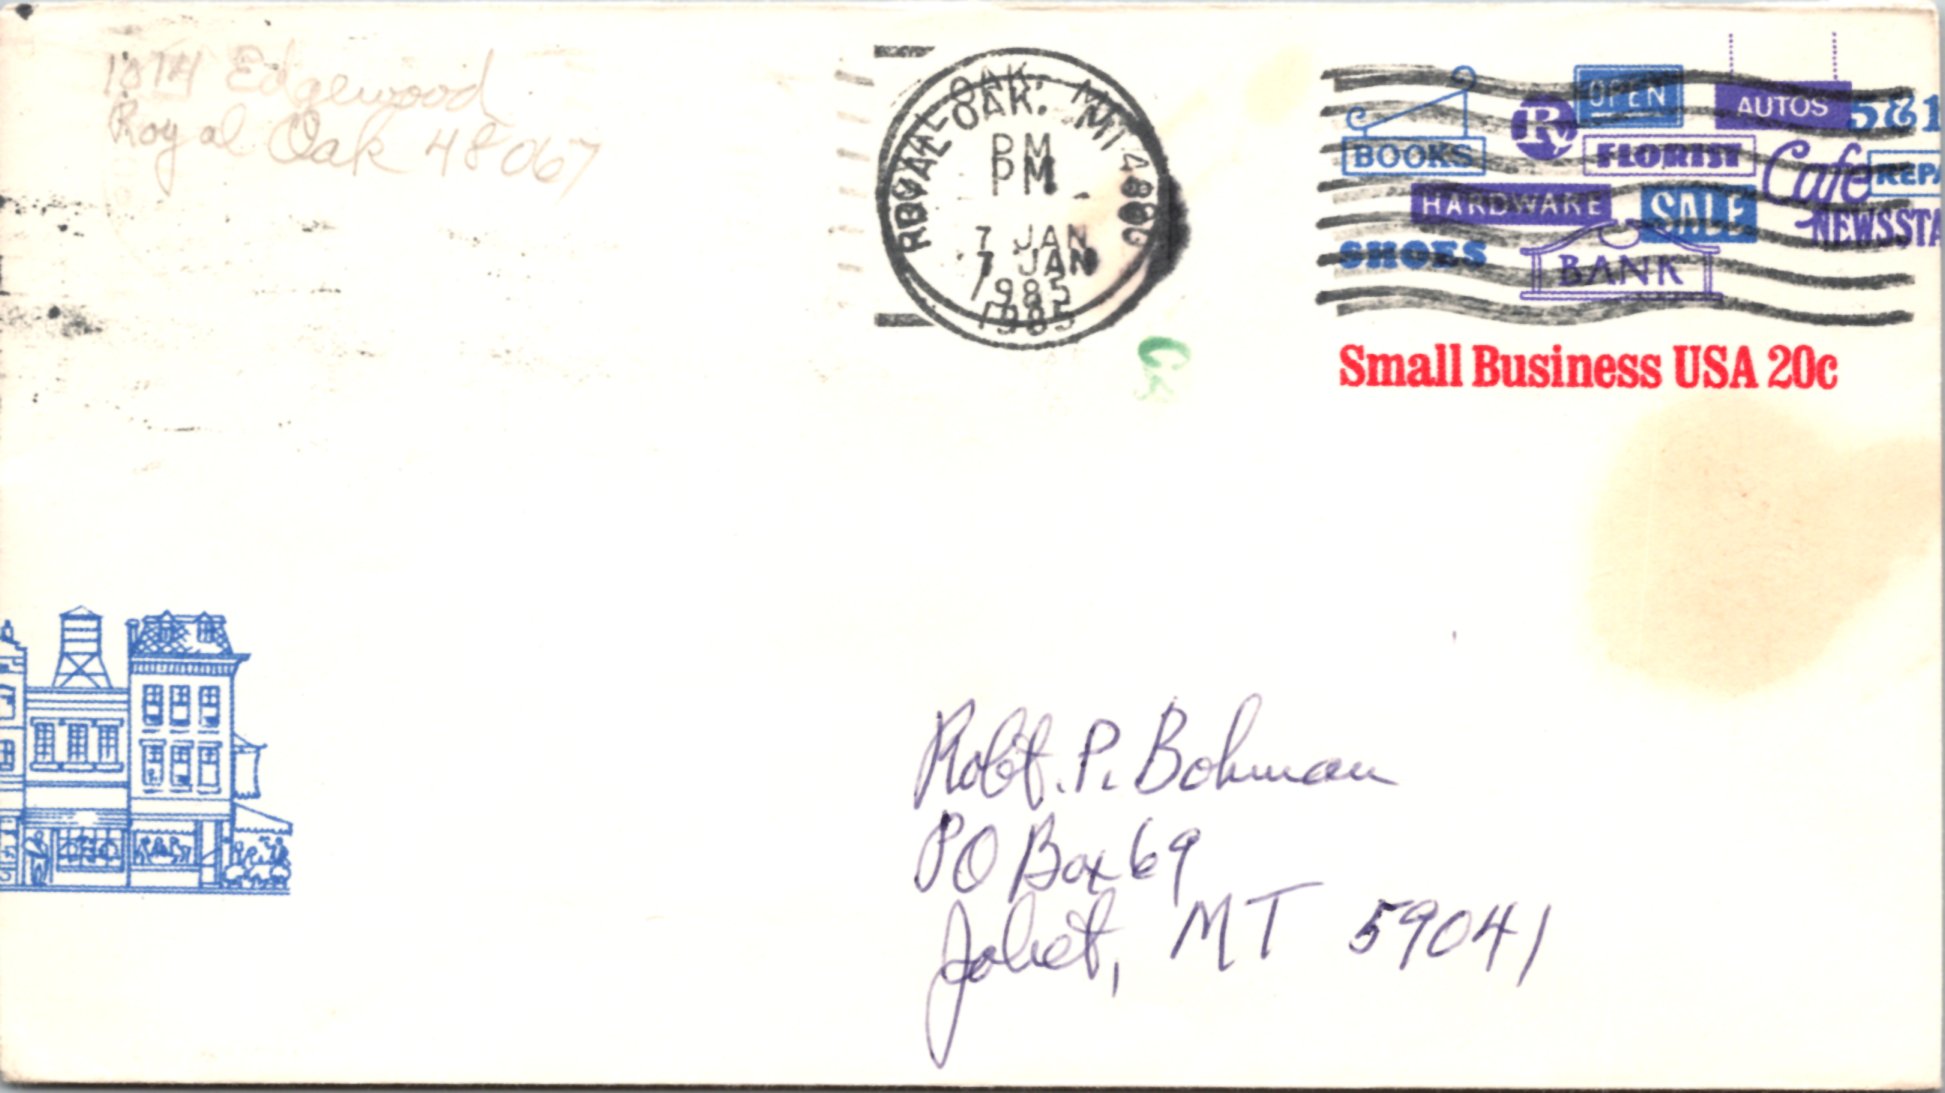 Edgewood
Royal Oak 48067
ROYAL OAK, MI
PM
PM
7 JAN
7 JAN
1985
1985
OPEN
AUTOS
581
BOOKS
R
FLORIST
Cafe
REPA
HARDWARE
SALE
NEWSSTA
SHOES
BANK
Small Business USA 20c
Robt. P. Bohman
PO Box 69
Joliet, MT 59041